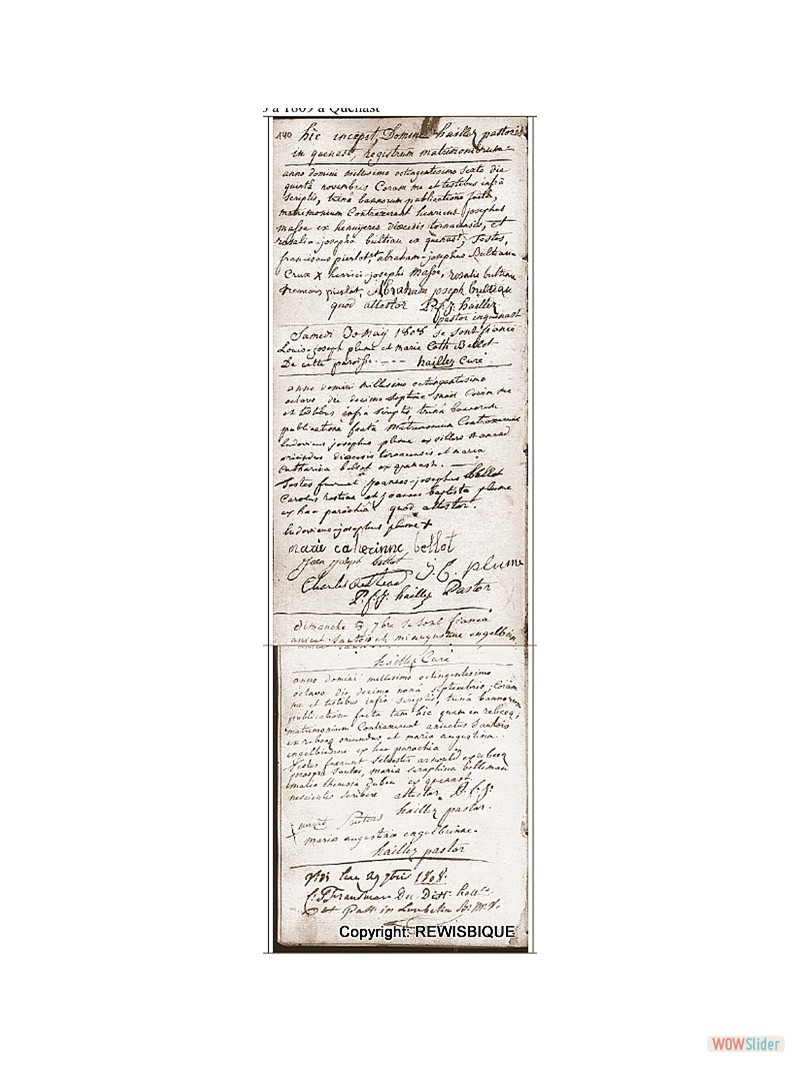 à 1809 à Quenast
140 hic incepit Domine haillez pastoris
in quenast, registrum matrimoniorum
anno domini millesimo octingentesimo sexto die
quintâ novembris Coram me et testibus infrà
scriptis, trinâ bannorum publicatione factâ,
matrimonium Contraxerunt henricus josephus
masse ex hennuyeres diœcesis tornacensis, et
rosalia-josepha bultiau ex quenast, Testes,
franciscus pierlot, et abraham-josephus Bultiau
Crux X henrici-josephi Masse, rosalie bultiau
francois pierlot, Abraham joseph bultiau
quod attestor P.f.J. haillez
pastor in quenast
Samedi 30 Maij 1808 se sont fiancé
Louis-joseph plume et marie Cath Bellot
De cette paroisse. --- haillez Curé
anno domini millesimo octingentesimo
octavo die decimo septimo Coram me
et testibus infra scriptis, trinâ bannorum
publicatione factâ Matrimonium Contraxerunt
ludovicus josephus plume ex villers
oriundus diœcesis tornacensis et maria
catharina bellot ex quenast.
Testes fuerunt joannes-josephus Bellot
Carolus et joannes baptista plume
ex hac parochiâ quod attestor.
ludovicus-josephus plume +
marie catherinne bellot
jean joseph bellot J. B. plume
Charles
P.f.J. haillez Pastor
dimanche 5, 7bre se sont fiancé
anicet Santois et m: augustine
haillez Curé
anno domini millesimo octingentesimo
octavo die decima nona Septembris Coram
me et testibus infrà scriptis, trinâ bannorum
publicatione facta tam hic quam in rebecq;
matrimonium Contraxerunt anicetus Santois
ex rebecq oriundus et maria augustina
ex hac parochia
Testes fuerunt Silvester arnould ex rebecq
prosper Santois, maria Seraphina
maria theresia Dubou ex quenast
nescientes scribere attestor P.f.J.
haillez pastor.
maria augustiaio
haillez pastor
29 7bris 1808.
Copyright: REWISBIQUE
WOWSlider